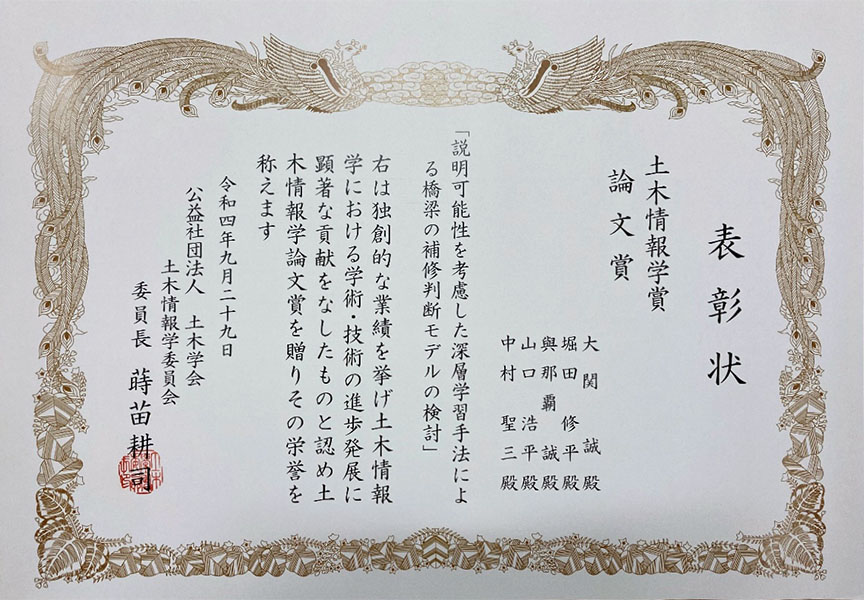 表彰状
土木情報学賞
論文賞
大関 誠 殿
堀田 修平 殿
與那覇 誠 殿
山口 浩平 殿
中村 聖三 殿
「説明可能性を考慮した深層学習手法によ
る橋梁の補修判断モデルの検討」
右は独創的な業績を挙げ土木情報
学における学術・技術の進歩発展に
顕著な貢献をなしたものと認め土
木情報学論文賞を贈りその栄誉を
称えます
令和四年九月二十九日
公益社団法人 土木学会
土木情報学委員会
委員長 蒔苗耕司